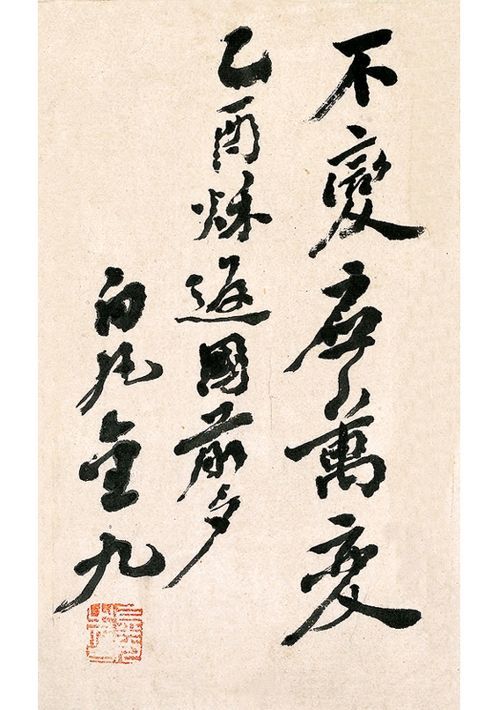 不變應萬変
乙酉秌返國前夕
白凡金九